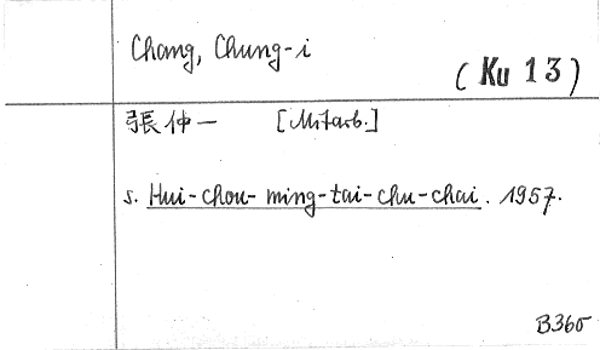 Chang, Chung-i
(Ku 13)
張仲一 [Mitarb.]
s. Hui-chou-ming-tai-chu-chai. 1957.
B360